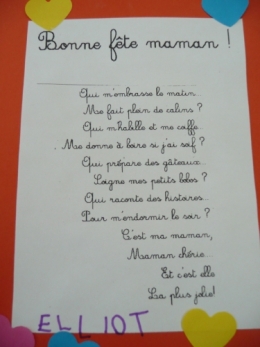 Bonne fête maman !
Qui m'embrasse le matin...
Me fait plein de calins ?
Qui m'habille et me coiffe...
Me donne à boire si j'ai soif ?
Qui prépare des gâteaux...
Soigne mes petits bobos ?
Qui raconte des histoires...
Pour m'endormir le soir ?
C'est ma maman,
Maman chérie...
Et c'est elle
La plus jolie!
ELLIOT